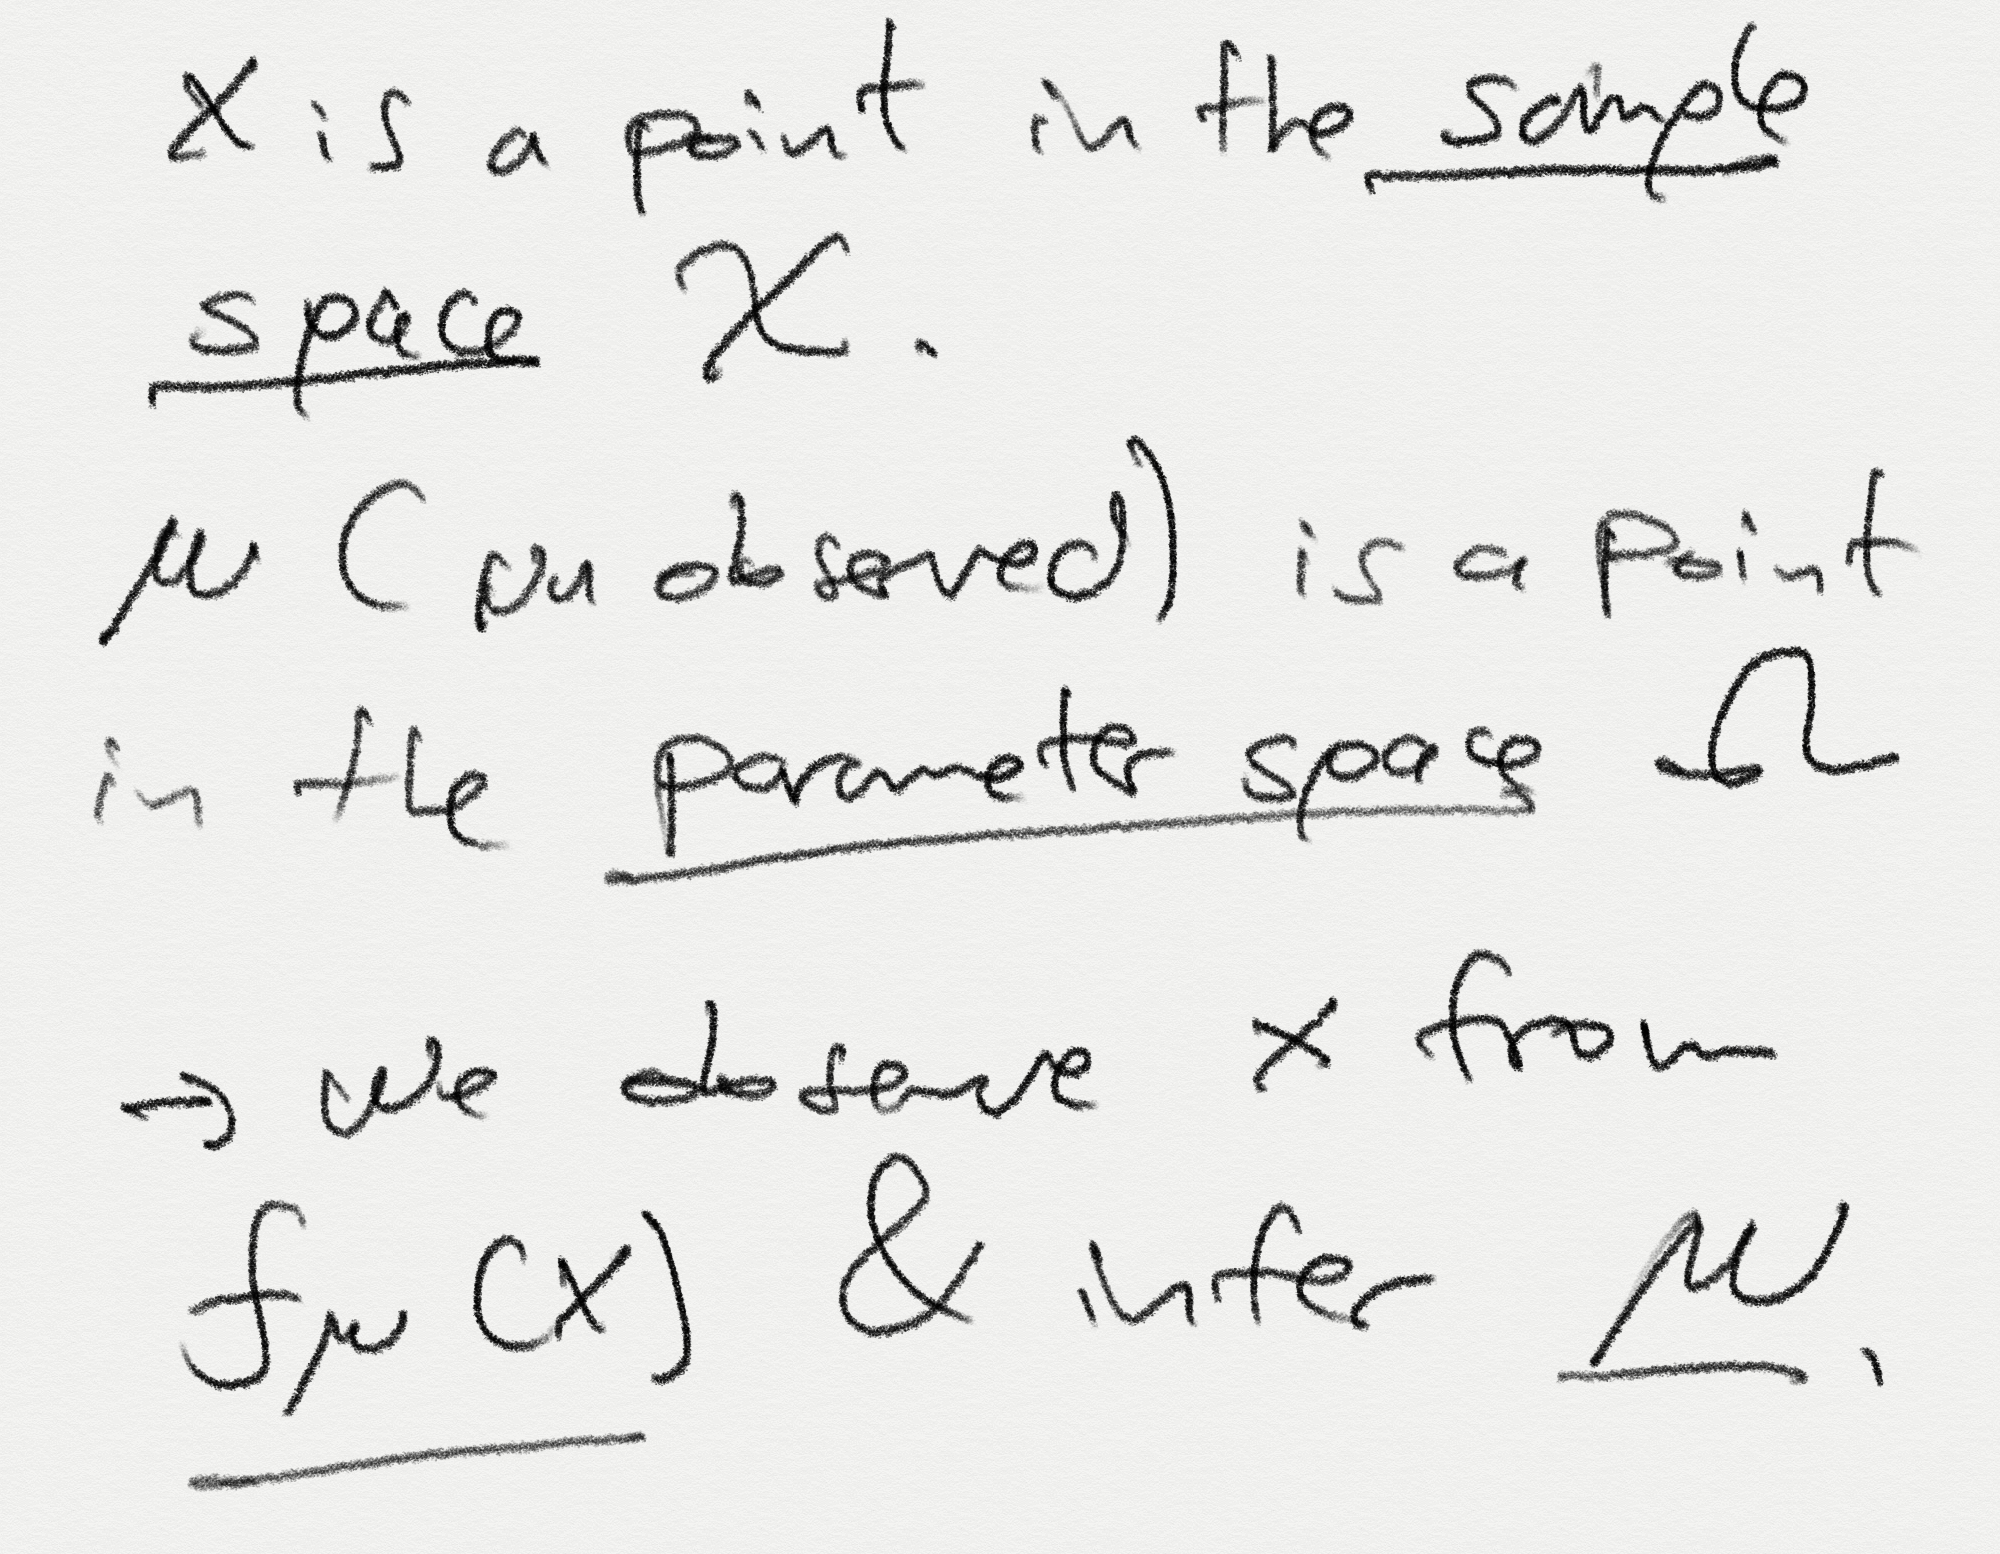 x is a point in the sample
space 𝒳.
μ (unobserved) is a point
in the parameter space Ω
→ we observe x from
f_μ(x) & infer μ.